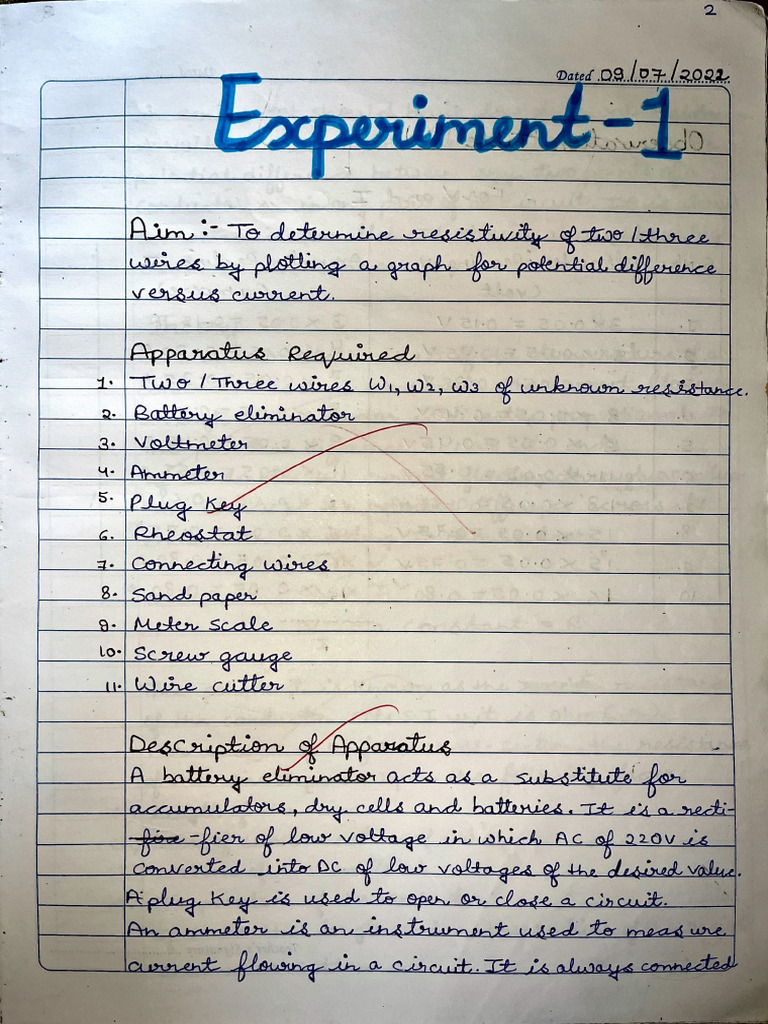 2
Dated 09/07/2022
Experiment-1
Aim :- To determine resistivity of two/three
wires by plotting a graph for potential difference
versus current.
Apparatus Required
1. Two/Three wires W1, W2, W3 of unknown resistance.
2. Battery eliminator
3. Voltmeter
4. Ammeter
5. Plug Key
6. Rheostat
7. Connecting wires
8. Sand paper
9. Meter scale
10. Screw gauge
11. Wire cutter
Description of Apparatus
A battery eliminator acts as a substitute for
accumulators, dry cells and batteries. It is a recti-
-fier of low voltage in which AC of 220V is
converted into DC of low voltages of the desired value.
A plug Key is used to open or close a circuit.
An ammeter is an instrument used to measure
current flowing in a circuit. It is always connected